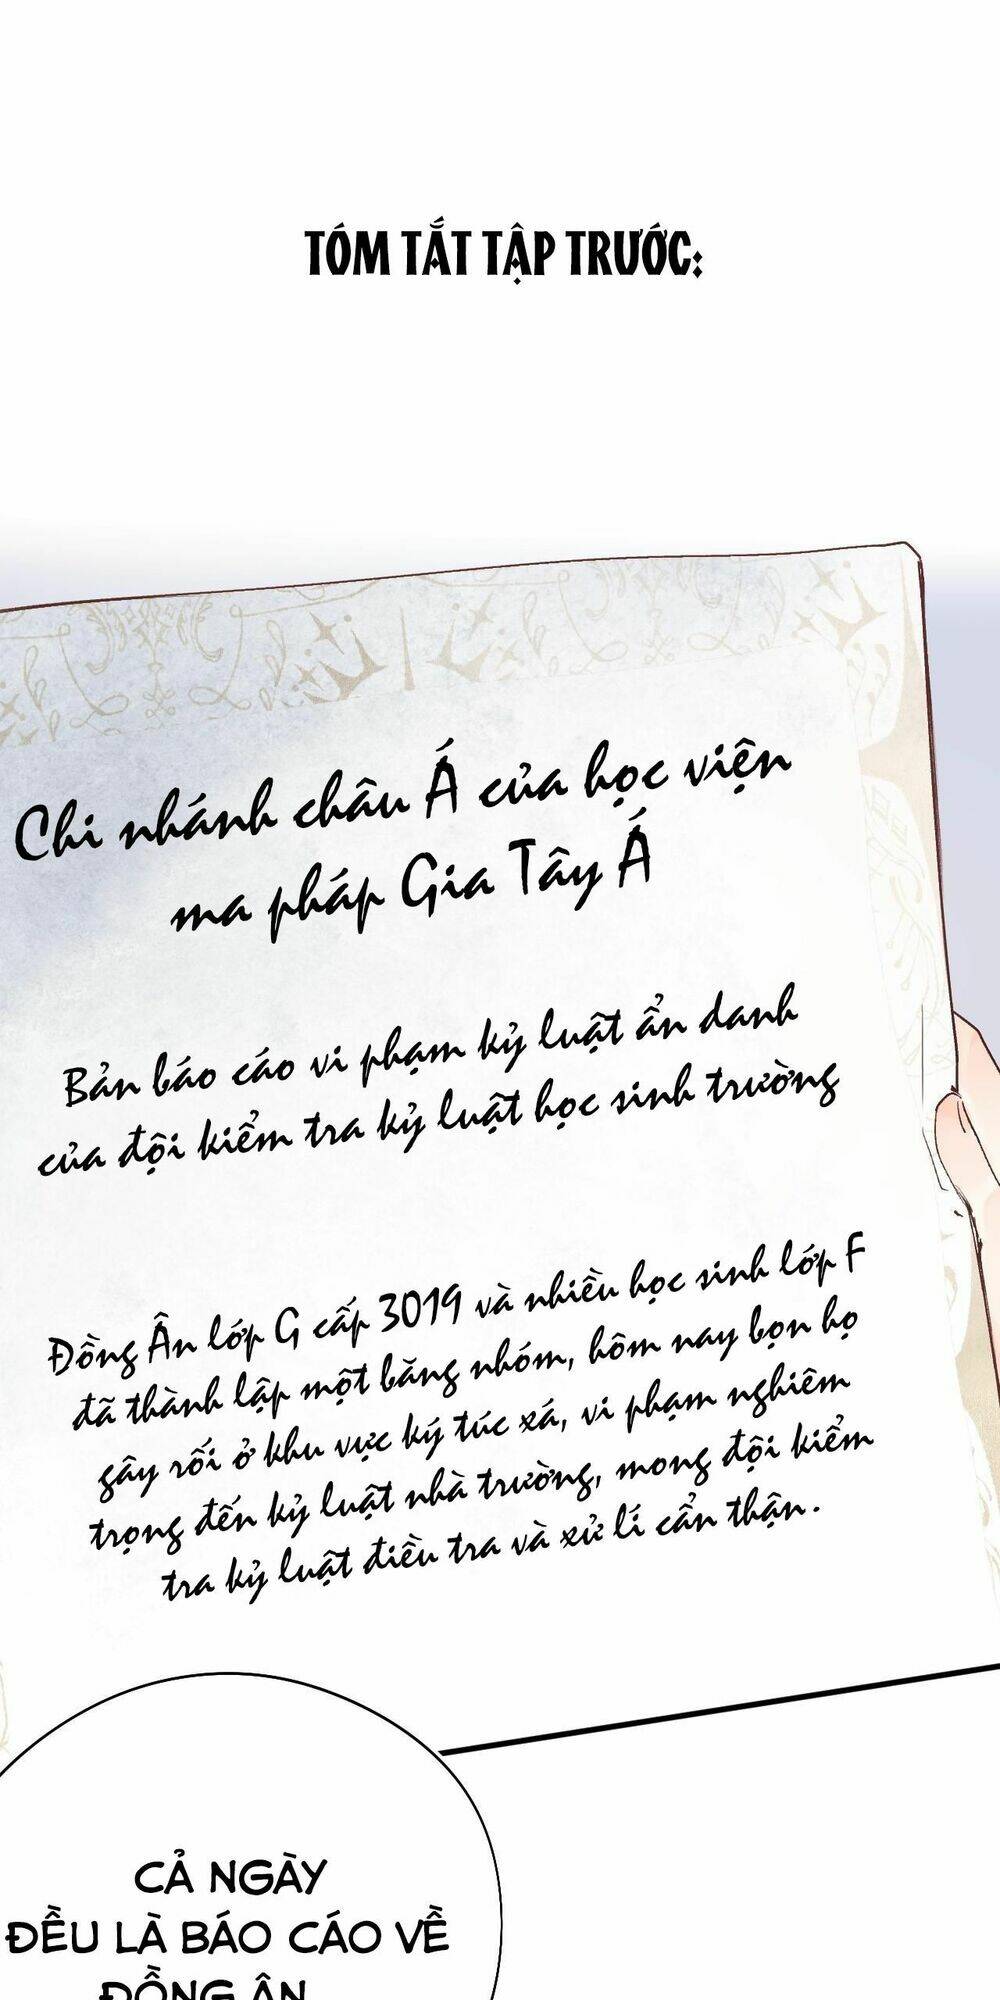 TÓM TẮT TẬP TRƯỚC:
Chi nhánh châu Á của học viện
ma pháp Gia Tây Á
Bản báo cáo vi phạm kỷ luật ẩn danh
của đội kiểm tra kỷ luật học sinh trường
Đồng Ân lớp G cấp 3019 và nhiều học sinh lớp F
đã thành lập một băng nhóm, hôm nay bọn họ
gây rối ở khu vực ký túc xá, vi phạm nghiêm
trọng đến kỷ luật nhà trường, mong đội kiểm
tra kỷ luật điều tra và xử lí cẩn thận.
CẢ NGÀY
ĐỀU LÀ BÁO CÁO VỀ
ĐỒNG ÂN